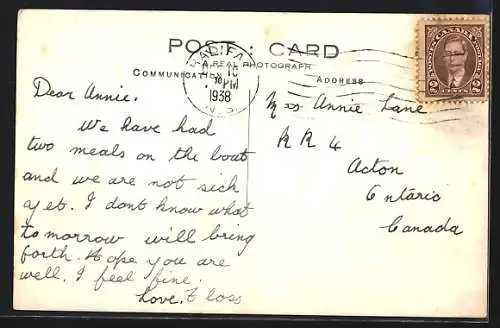 POST CARD
A REAL PHOTOGRAPH
COMMUNICATION
ADDRESS
HALIFAX
10
PM
1938
N.S.
POSTES CANADA POSTAGE
2 CENTS 2
Dear Annie.
We have had
two meals on the boat
and we are not sick
yet. I dont know what
tomorrow will bring
forth. Hope you are
well. I feel fine.
Love. Floss
Miss Annie Lane
RR 4
Acton
Ontario
Canada